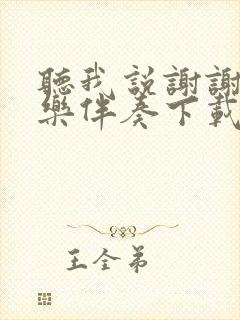 聽我説謝謝
樂伴奏下載
王全弟